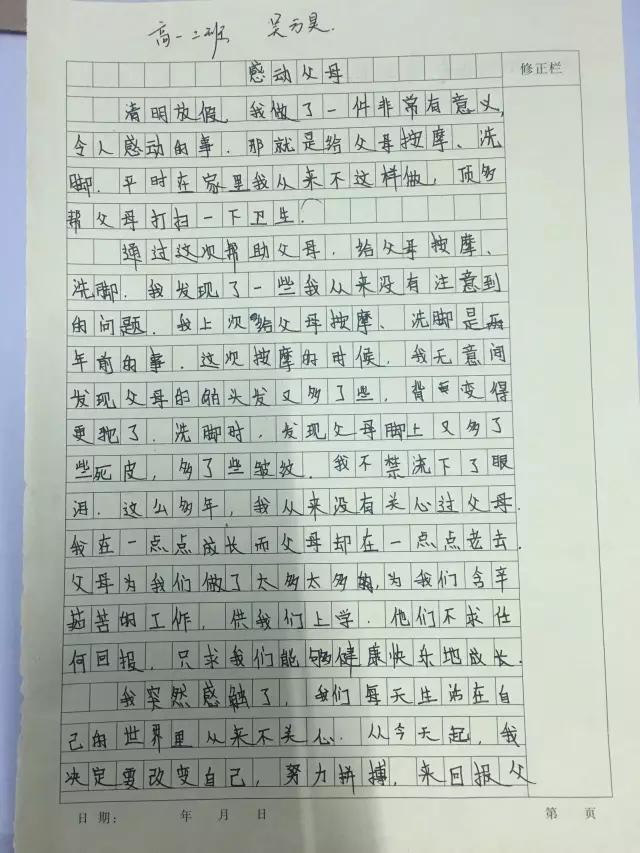 高一二班 吴方昊.
感动父母
修正栏
清明放假 我做了一件非常有意义,
令人感动的事. 那就是给父母按摩、洗
脚. 平时在家里我从来不这样做, 顶多
帮父母打扫一下卫生.
通过这次帮助父母. 给父母按摩、
洗脚. 我发现了一些我从来没有注意到
的问题. 我上次给父母按摩、洗脚是
年前的事. 这次按摩的时候, 我无意间
发现父母的白头发又多了些, 背变得
更驼了. 洗脚时, 发现父母脚上又多了
些死皮, 多了些皱纹. 我不禁流下了眼
泪. 这么多年, 我从来没有关心过父母.
我在一点点成长而父母却在一点点老去.
父母为我们做了太多太多的, 为我们含辛
茹苦的工作, 供我们上学. 他们不求任
何回报. 只求我们能够健康快乐地成长.
我突然感触了, 我们每天生活在自
己的世界里从来不关心. 从今天起, 我
决定要改变自己, 努力拼搏, 来回报父
日期: 年 月 日 第 页